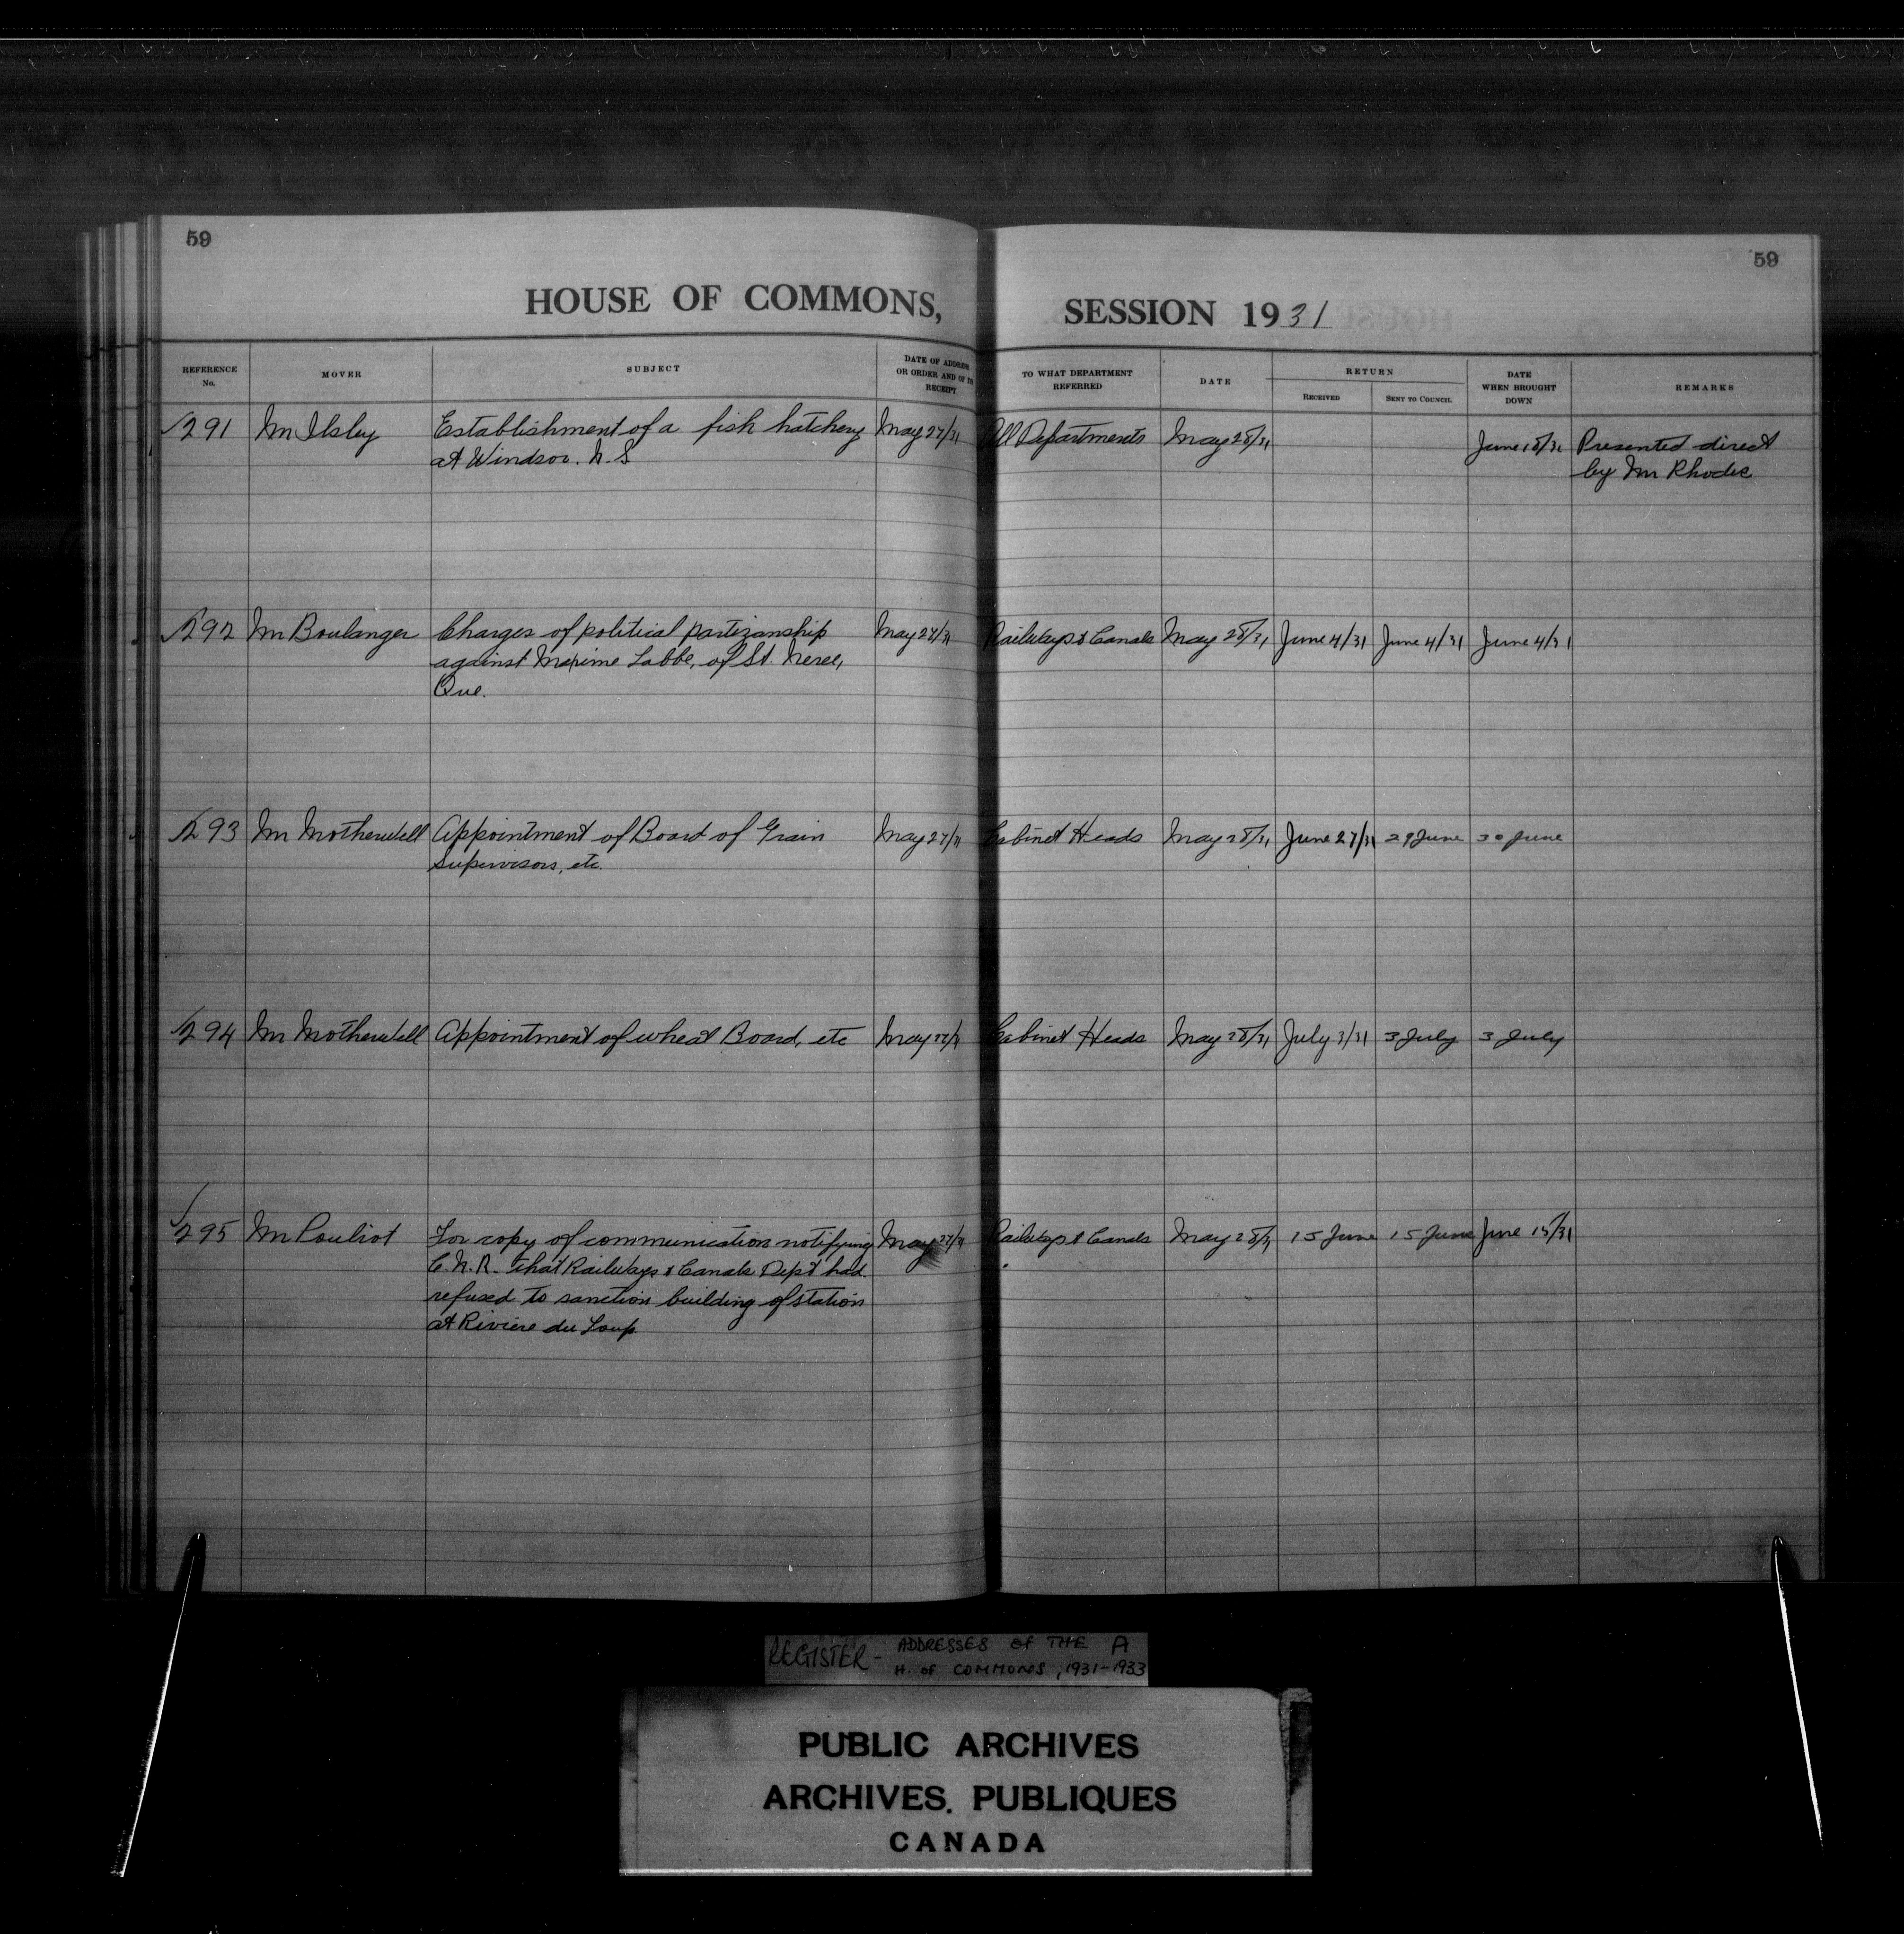 59
59
HOUSE OF COMMONS, SESSION 1931
REFERENCE No.
MOVER
SUBJECT
DATE OF ADDRESS OR ORDER AND OF ITS RECEIPT
TO WHAT DEPARTMENT REFERRED
DATE
RETURN
RECEIVED
SENT TO COUNCIL
DATE WHEN BROUGHT DOWN
REMARKS
291 Mr Ilsley Establishment of a fish hatchery May 27/31 All Departments May 28/31 June 18/31 Presented direct
at Windsor. N. S by Mr Rhodes
292 Mr Boulanger Charges of political partizanship May 27/31 Railways & Canals May 28/31 June 4/31 June 4/31 June 4/31
against Maxime Labbe, of St. Neree,
Que.
293 Mr Motherwell Appointment of Board of Grain May 27/31 Cabinet Heads May 28/31 June 27/31 29 June 30 June
Supervisors, etc.
294 Mr Motherwell Appointment of wheat Board, etc May 27/31 Cabinet Heads May 28/31 July 3/31 3 July 3 July
295 Mr Pouliot For copy of communication notifying May 27/31 Railways & Canals May 28/31 15 June 15 June June 15/31
C. N. R. that Railways & Canals Dept had
refused to sanction building of station
at Riviere du Loup
REGISTER - ADDRESSES OF THE A
H. OF COMMONS, 1931-1933
PUBLIC ARCHIVES
ARCHIVES PUBLIQUES
CANADA